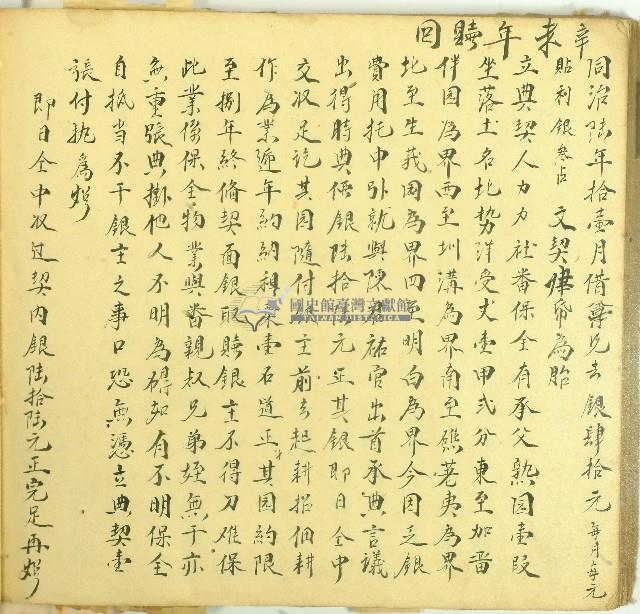 辛未年贖回
同治陆年拾壹月借尊兄去銀肆拾元每月每元
貼利銀叁占 文契肆帋為胎
立典契人力力社番保全有承父熟园壹段
坐落土名北势洋受丈壹甲弍分東至加番
伴园為界西至圳溝為界南至礁荖夷為界
北至生莪园為界四至明白為界今因乏銀
費用托中引就與陳君祐官出首承典言議
出得時典価銀陆拾陆元正其銀即日仝中
交収足讫其园隨付銀主前去起耕招佃耕
作為業逐年約納租粟壹石道正其园約限
至捌年終俻契面銀取贖銀主不得刁难保
此業係保全物業與番親叔兄弟姪無干亦
無重張典掛他人不明為碍如有不明保全
自抵当不干銀主之事口恐無憑立典契壹
張付执為炤
即日仝中収过契內銀陆拾陆元正完足再炤
國史館臺灣文獻館
TAIWAN HISTORICA